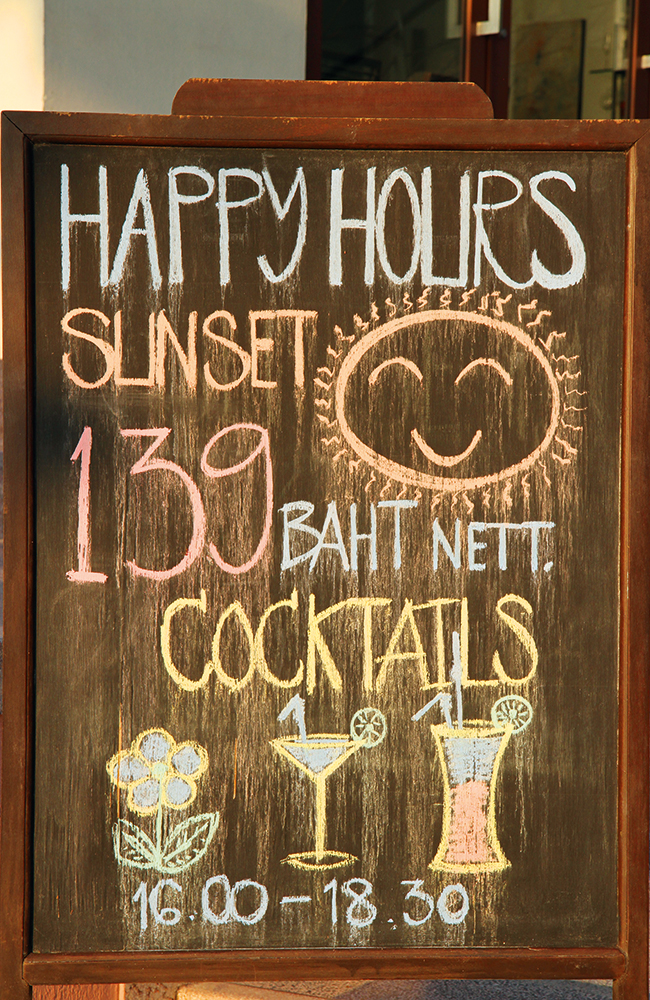 HAPPY HOURS
SUNSET
139 BAHT NETT.
COCKTAILS
16.00 - 18.30